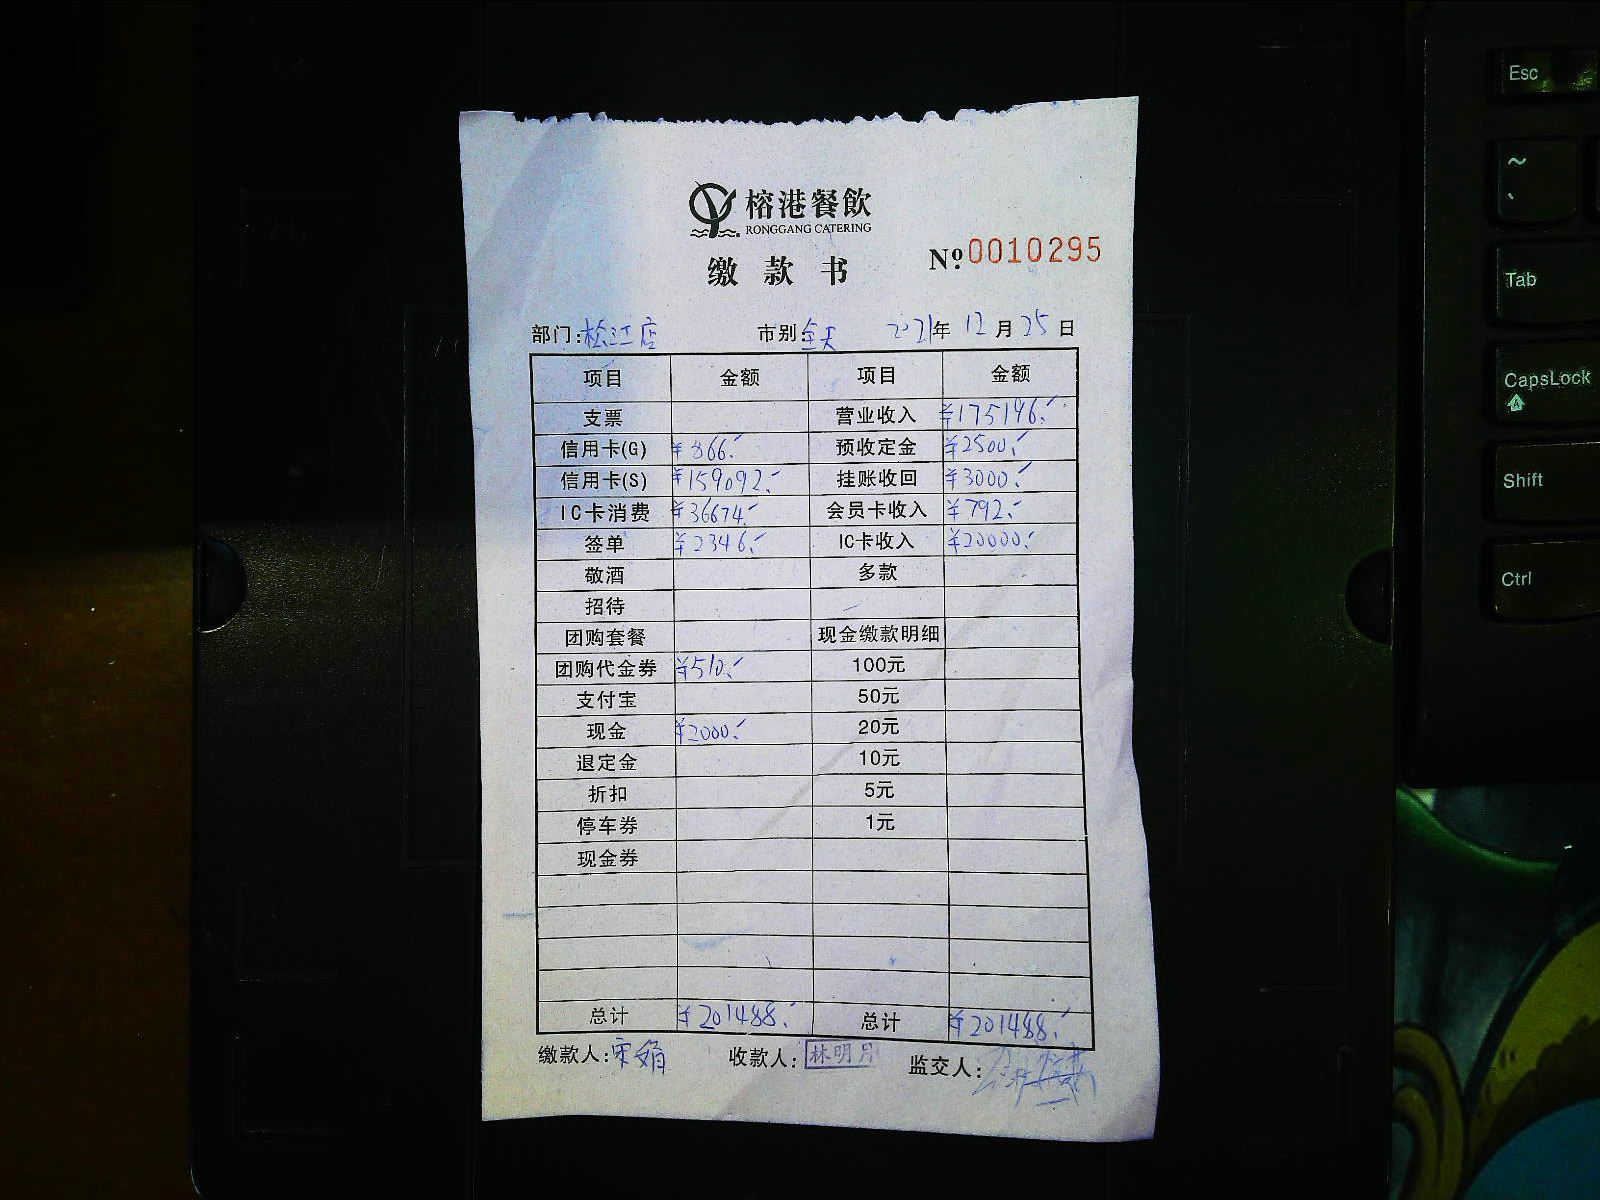 榕港餐飲
RONGGANG CATERING
缴款书
Nº.0010295
部门:松江店 市别:全天 2021年12月25日
项目 金额 项目 金额
支票 营业收入 ¥175196.-
信用卡(G) ¥866.- 预收定金 ¥2500.-
信用卡(S) ¥159092.- 挂账收回 ¥3000.-
IC卡消费 ¥36674.- 会员卡收入 ¥792.-
签单 ¥2346.- IC卡收入 ¥20000.-
敬酒 多款
招待
团购套餐 现金缴款明细
团购代金券 ¥510.- 100元
支付宝 50元
现金 ¥2000.- 20元
退定金 10元
折扣 5元
停车券 1元
现金券
总计 ¥201488.- 总计 ¥201488.-
缴款人:宋娟 收款人:林明月 监交人:
Esc
~
Tab
CapsLock
A
Shift
Ctrl